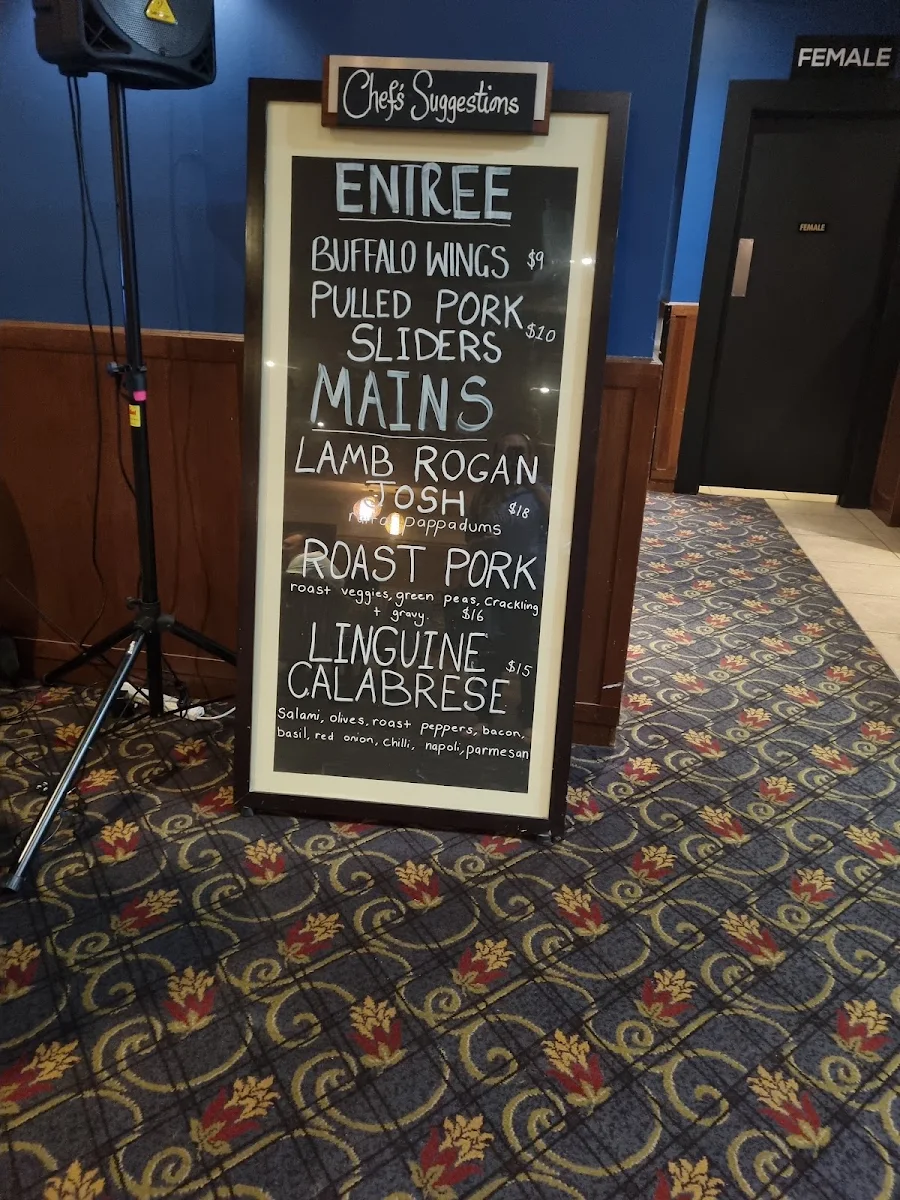 FEMALE
Chef's Suggestions
ENTREE
BUFFALO WINGS $9
PULLED PORK
SLIDERS $10
MAINS
LAMB ROGAN
JOSH $18
pappadums
ROAST PORK
roast veggies, green peas, Crackling
+ gravy. $16
LINGUINE
CALABRESE $15
Salami, olives, roast peppers, bacon,
basil, red onion, chilli, napoli, parmesan
FEMALE